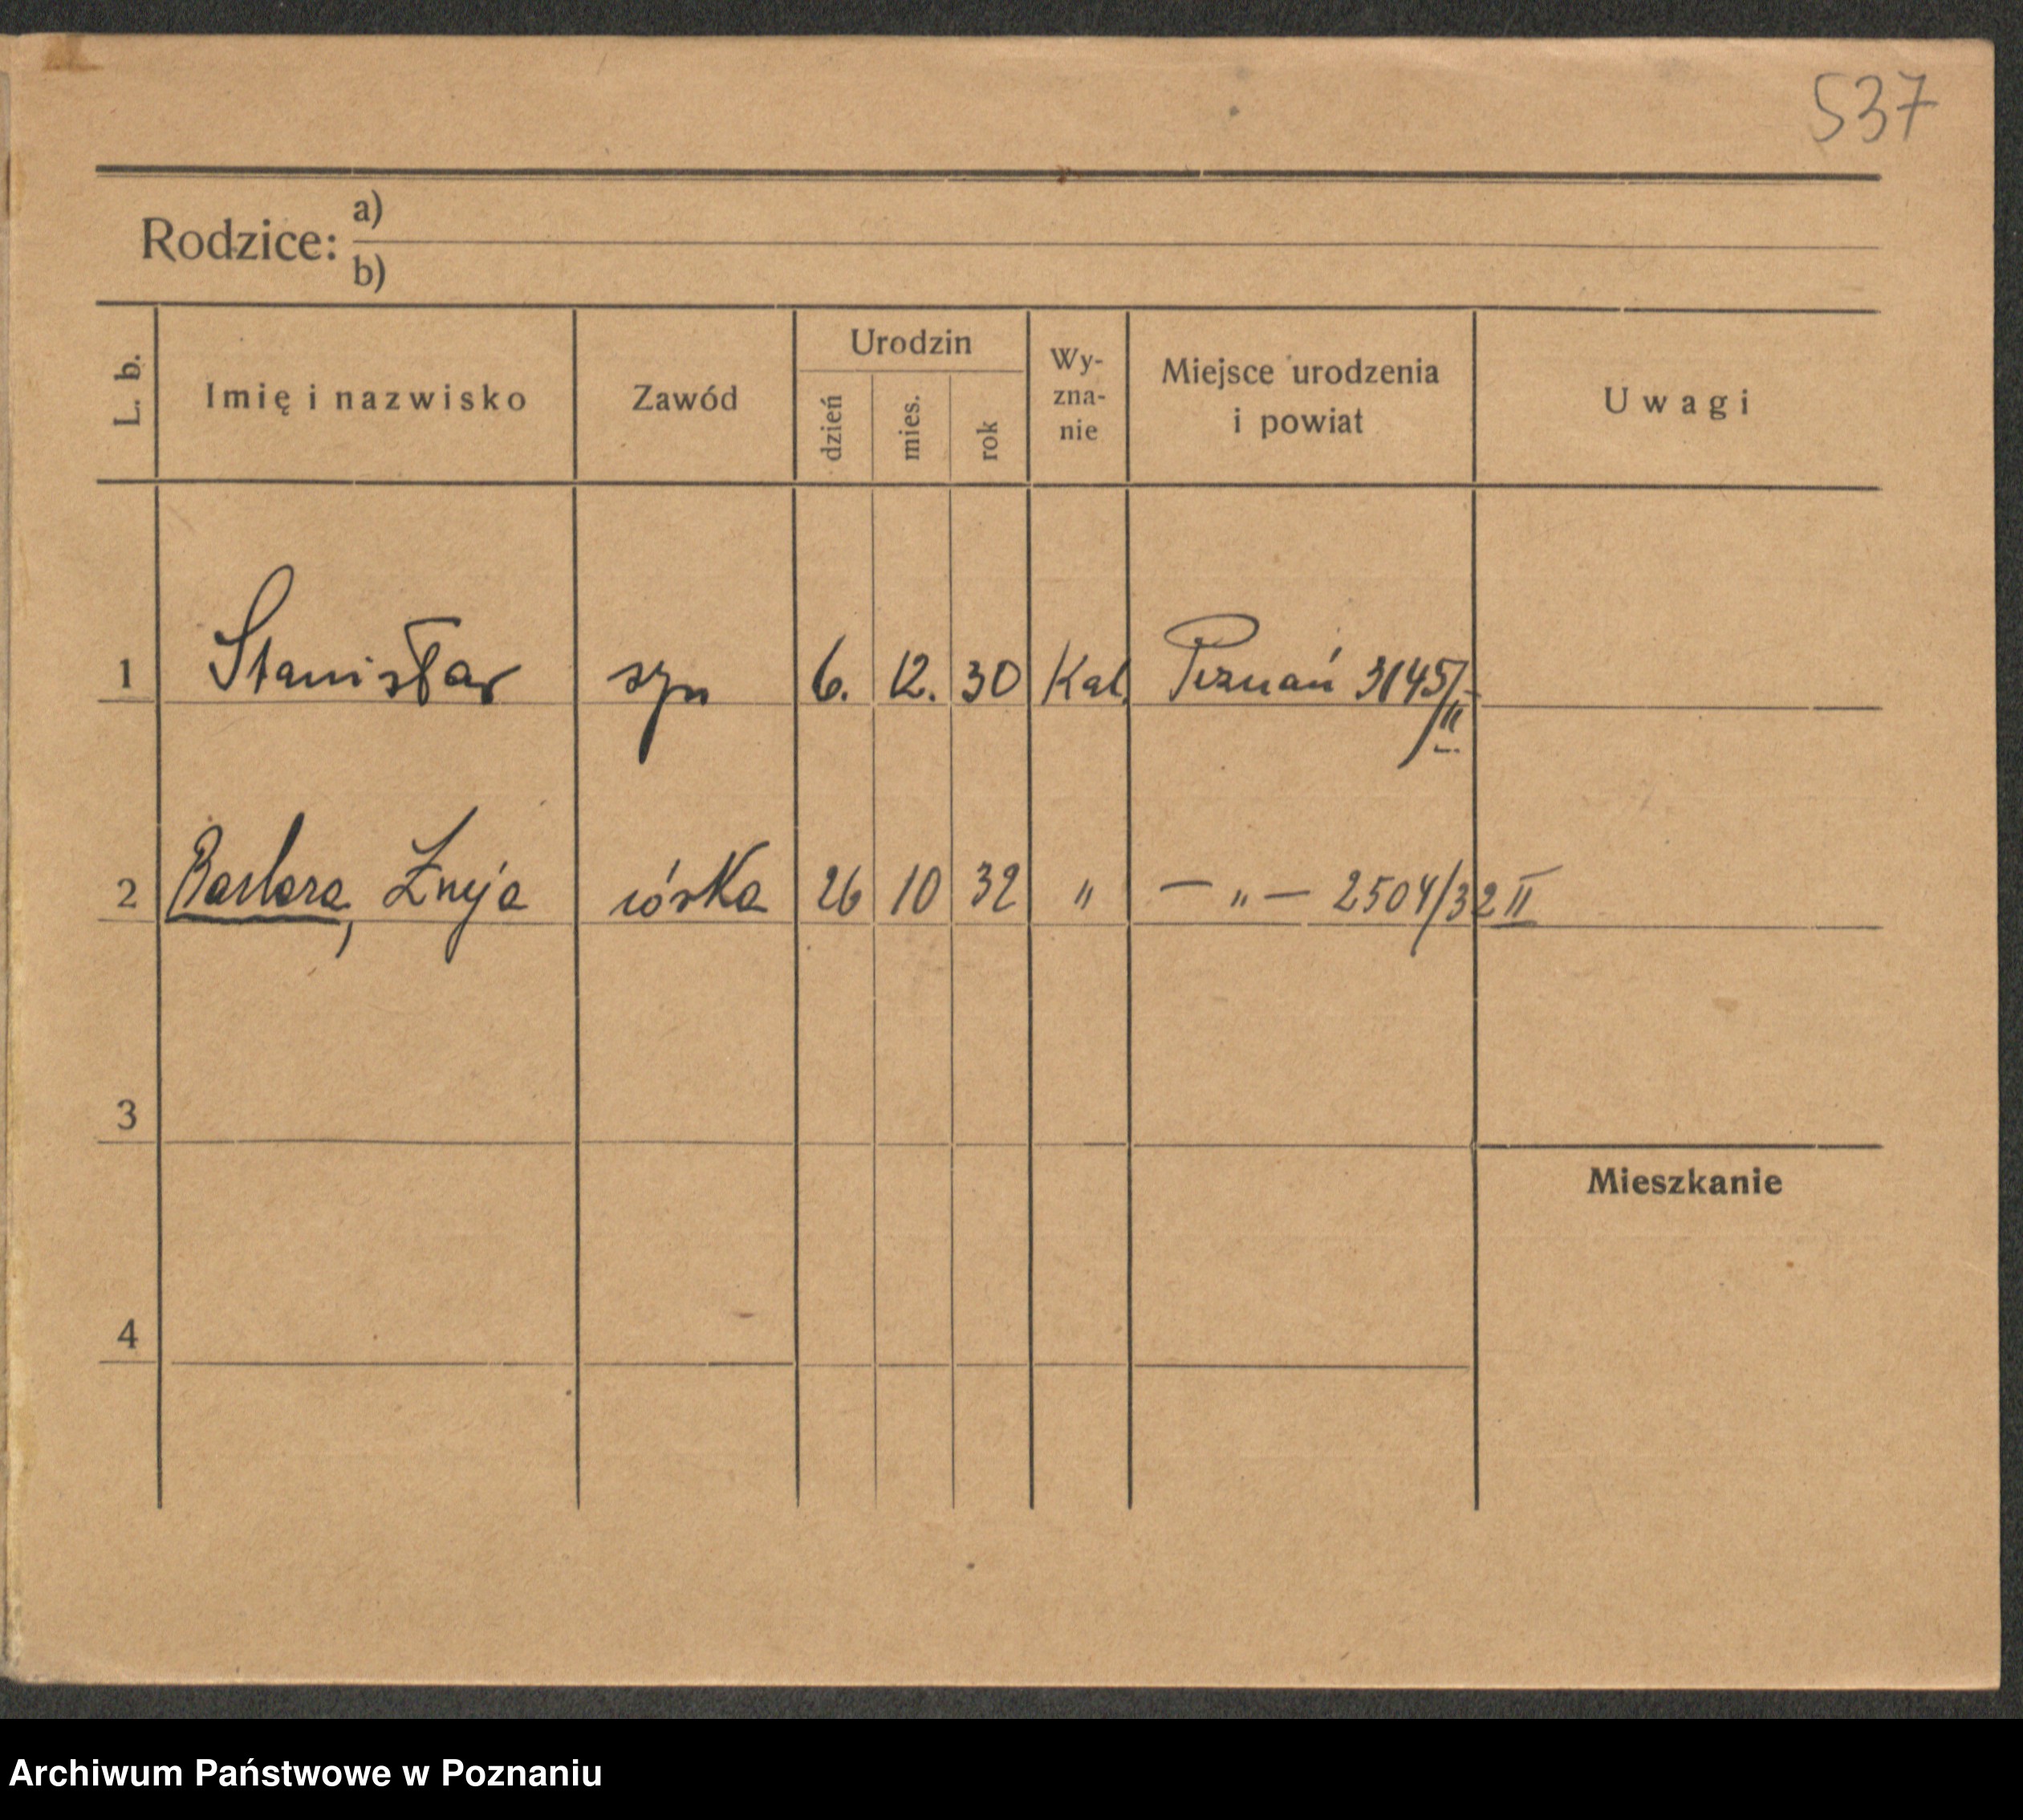 537
Rodzice: a)
b)
L. b. Imię i nazwisko Zawód Urodzin dzień mies. rok Wy-zna-nie Miejsce urodzenia i powiat Uwagi
1 Stanisław syn 6. 12. 30 Kat. Poznań 3145/II
2 Barbara, córka 26 10 32 " — " — 2504/32 II
3
Mieszkanie
4
Archiwum Państwowe w Poznaniu